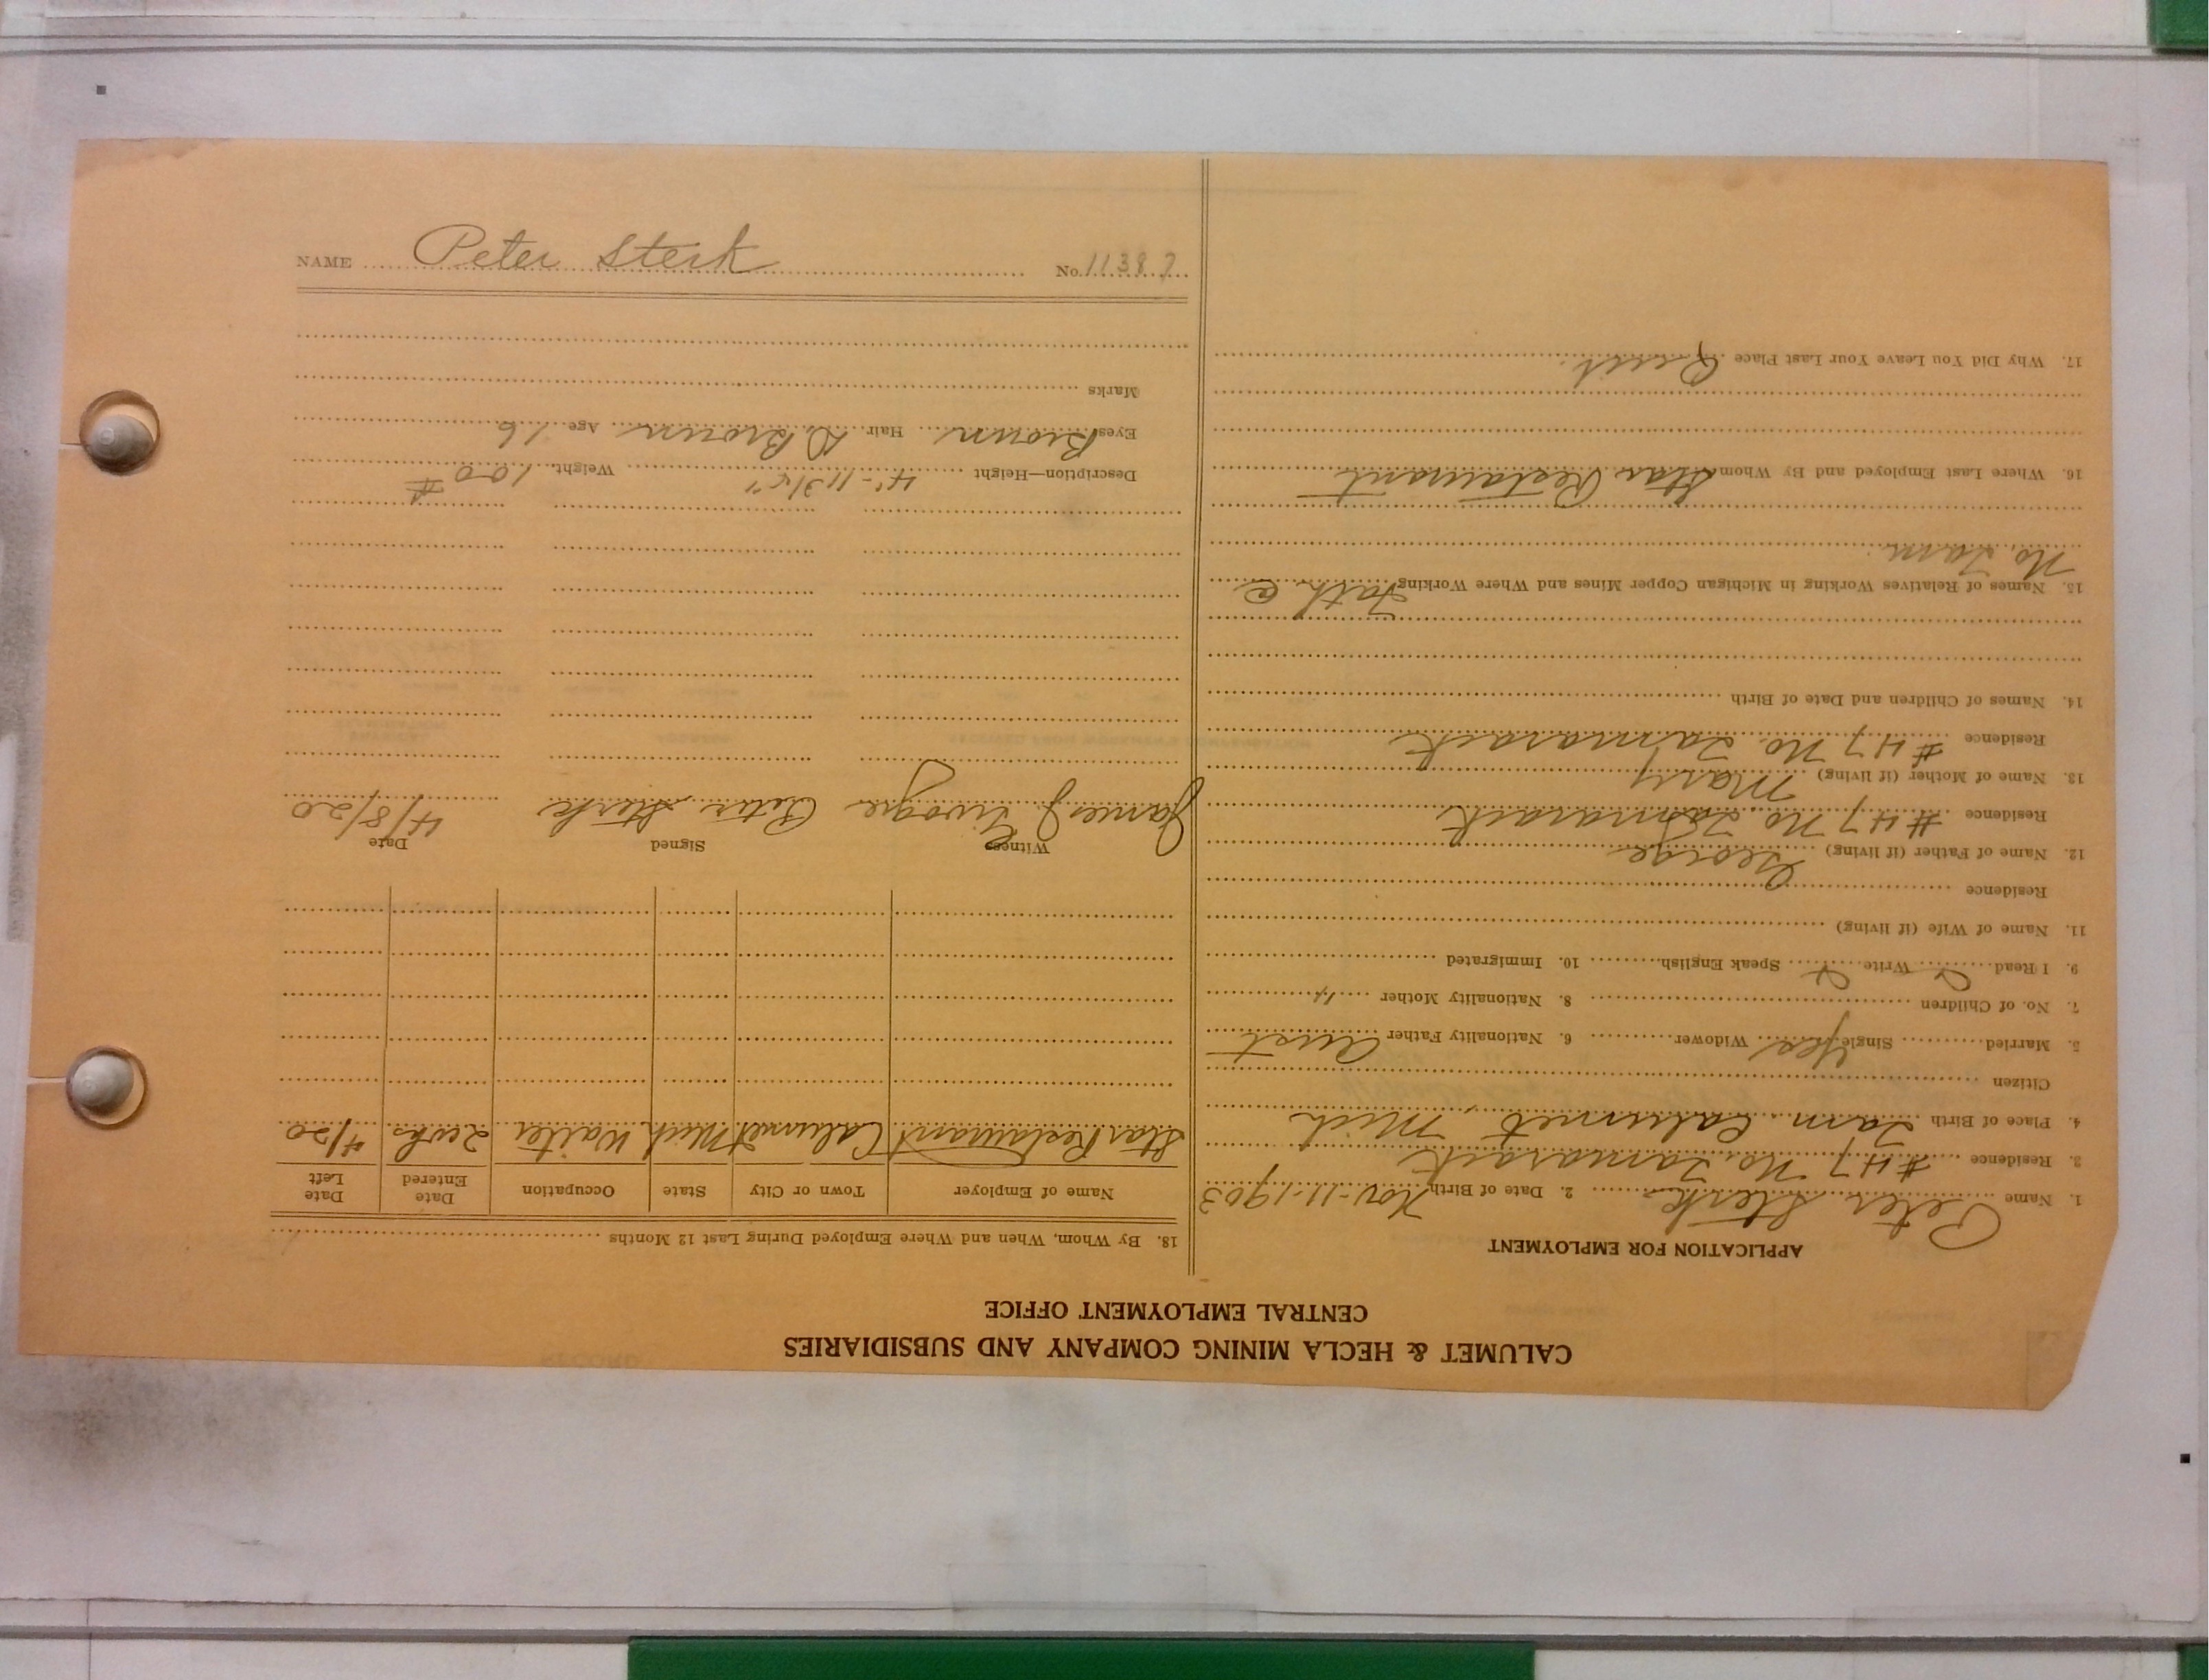 CALUMET & HECLA MINING COMPANY AND SUBSIDIARIES
CENTRAL EMPLOYMENT OFFICE
APPLICATION FOR EMPLOYMENT
1. Name Peter Sterk 2. Date of Birth Nov-11-1903
3. Residence #47 No. Tamarack
4. Place of Birth Tam. Calumet, Mich
Citizen
5. Married Single Yes Widower 6. Nationality Father Aust
7. No. of Children 8. Nationality Mother "
9. I Read Write Speak English 10. Immigrated
11. Name of Wife (if living)
Residence
12. Name of Father (if living) George
Residence #47 No. Tamarack
13. Name of Mother (if living) Mary
Residence #47 No. Tamarack
14. Names of Children and Date of Birth
15. Names of Relatives Working in Michigan Copper Mines and Where Working Fath @
No. Tam.
16. Where Last Employed and By Whom Star Restaurant
17. Why Did You Leave Your Last Place Quit.
18. By Whom, When and Where Employed During Last 12 Months
Name of Employer Town or City State Occupation Date Entered Date Left
Star Restaurant Calumet Mich Waiter 2 wks 4/20
Witness Signed Date
James J. Peter Sterk 4/8/20
Description—Height 4'-11 3/4" Weight 100 #
Eyes Brown Hair D. Brown Age 16
Marks
NAME Peter Sterk No. 11387